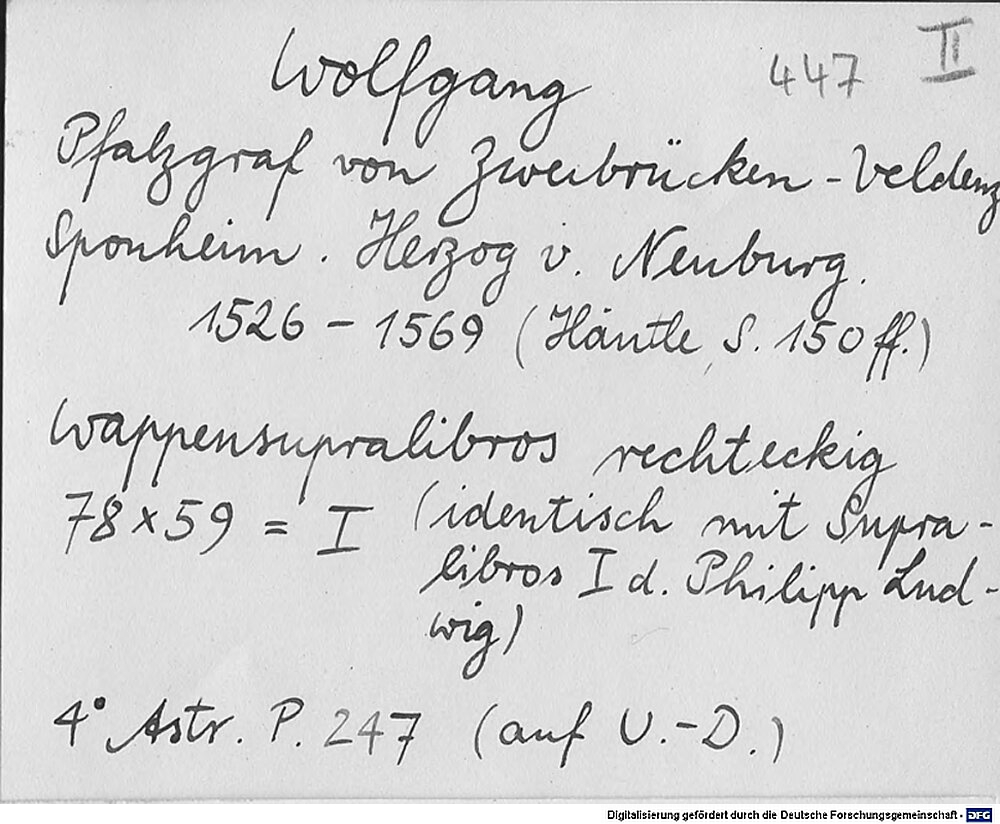 Wolfgang 447 II
Pfalzgraf von Zweibrücken-Veldenz
Sponheim. Herzog v. Neuburg.
1526 - 1569 (Häutle, S. 150 ff.)
Wappensupralibros rechteckig
78 x 59 = I (identisch mit Supra-
libros I d. Philipp Lud-
wig)
4° Astr. P. 247 (auf U.-D.)
Digitalisierung gefördert durch die Deutsche Forschungsgemeinschaft - DFG